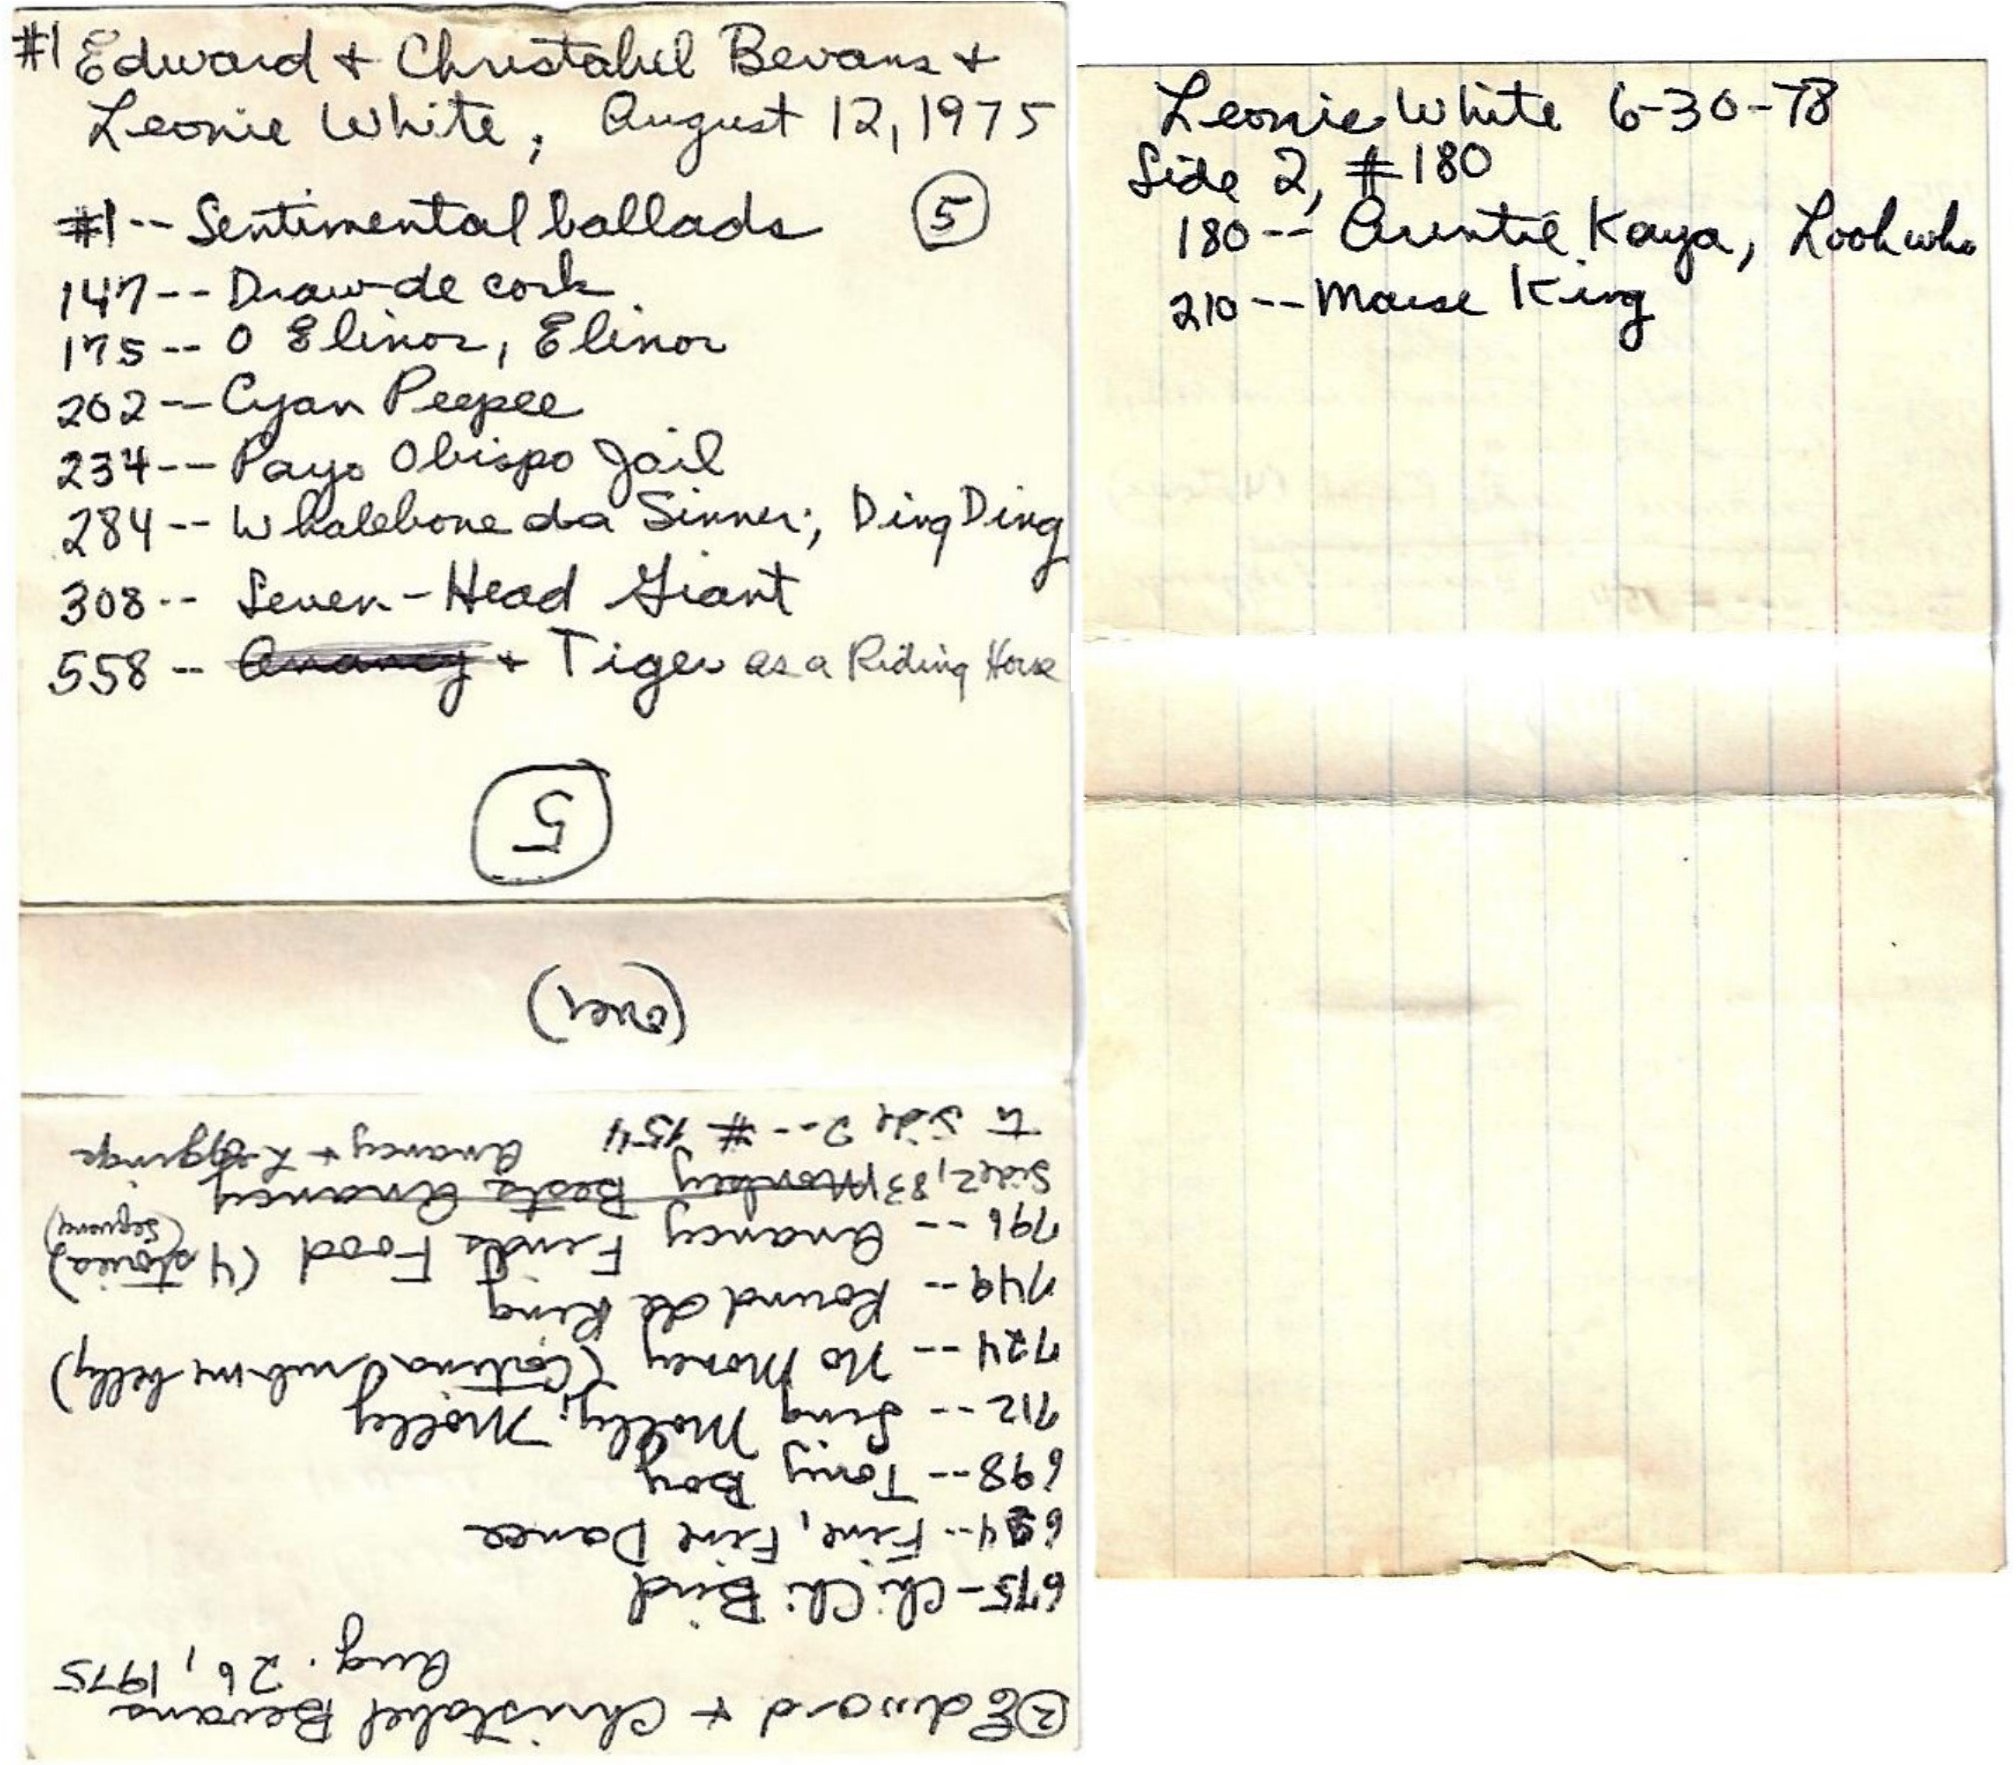 #1 Edward + Christabel Bevans +
Leonie White, August 12, 1975
#1-- Sentimental ballads 5
147-- Draw de cork
175-- O Elinor, Elinor
202-- Cyan Peepee
234-- Payo Obispo Jail
284-- Whalebone da Sinner; Ding Ding
308-- Seven-Head Giant
558-- Anancy + Tiger as a Riding Horse
5
(over)
② Edward + Christabel Bevans
Aug. 26, 1975
675- Chi Chi Bird
694-- Fine, Fine Dance
698-- Tony Boy
712-- Sing Molly, Molly
724-- No Money (Catina rub me belly)
749-- Round de Ring
796-- Anancy Finds Food (4 stories)
(Sequence)
Side 2, 83 Monkey Bests Anancy
to Side 2-- #154 Anancy +
Leonie White 6-30-78
Side 2, #180
180-- Auntie Kaya, Look who
210-- Mouse King